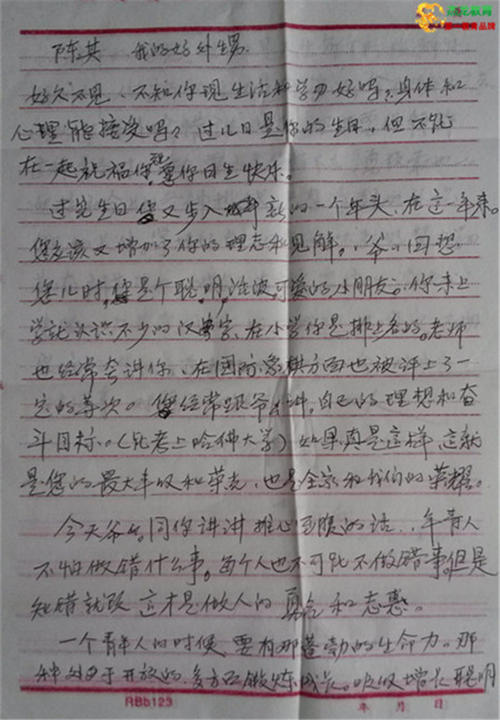 陈其 我的好外甥.
好久不见、不知你现生活和学习好吗？身体和
心理能接受吗？过几日是你的生日，但不能
在一起祝福你，愿你日生快乐。
过完生日 又步入 新的一个年头、在这一年来。
您应该又增加了你的理志和见解。爷回想
您儿时，您是个聪明活波可爱的小朋友。你未上
学就认识不少的汉字、在小学你是排上名的。老师
也经常夸讲你、在国际象棋方面也被评上了一
定的等次。您经常跟爷讲，自己的理想和奋
斗目标。（能考上哈佛大学）如果真是这样、这就
是您的最大丰收和荣光，也是全家和我们的荣耀。
今天爷爷同你讲讲推心至腹的话、年青人
不怕做错什么事。每个人也不可能不做错事。但是
知错就改 这才是做人的 真 和志 。
一个青年人的时候、要有那蓬勃的生命力。那
种 于开放的、多方 锻炼成长。吸收增长 聪明
RBb123 年 月 日